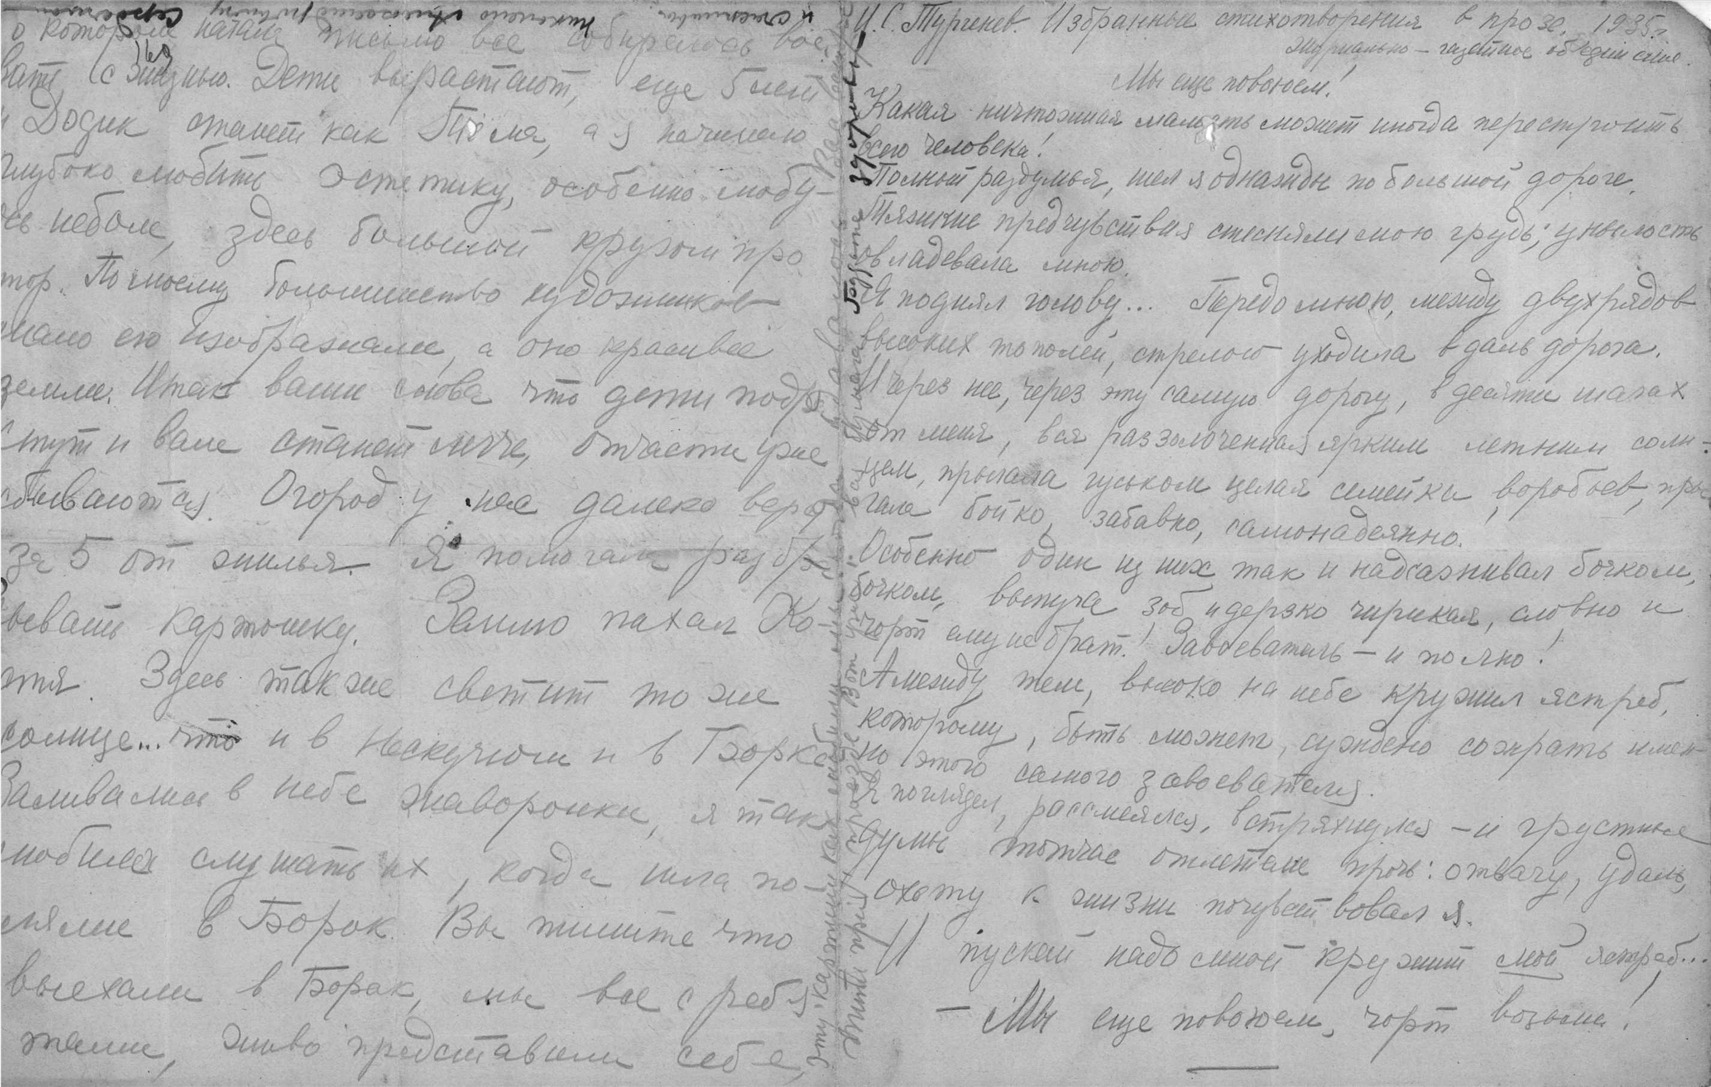 о котором начале письмо все собиралось вое-
вать с жизнью. Дети вырастают, еще 5 лет
и Додик станет как Тюма, а я начинаю
глубоко любить эстетику, особенно любу-
юсь небом, здесь большой кругом про
тор. По моему большинство художников
мало его изображали, а оно красивее
земли. Итак ваши слова что дети подра
стут и вам станет легче, отчасти уже
сбываются. Огород у нас далеко верс
за 5 от жилья. Я помогала разбр
сывать картошку. Землю пахал Ко-
стя. Здесь также светит то же
солнце... что и в Нескучном и в Борке
Заливались в небе жаворонки, я так
любила слушать их, когда шла по-
лями в Борок. Вы пишите что
выехали в Борок, мы все с ребя
тами, живо представили себе,
эту картинку
И. С. Тургенев. Избранные стихотворения в прозе, 1935 г.
Журнально-газетное объединение.
Мы еще повоюем!
Какая ничтожная малость может иногда перестроить
всего человека!
Полный раздумья, шел я однажды по большой дороге.
Тяжкие предчувствия стесняли мою грудь; унылость
овладевала мною.
Я поднял голову... Передо мною, между двух рядов
высоких тополей, стрелою уходила вдаль дорога.
И через нее, через эту самую дорогу, в десяти шагах
от меня, вся раззолоченная ярким летним солн-
цем, прыгала гуськом целая семейка воробьев, пры-
гала бойко, забавно, самонадеянно!
Особенно один из них так и надсаживал бочком,
бочком, выпуча зоб и дерзко чирикая, словно и
чорт ему не брат! Завоеватель – и полно!
А между тем, высоко на небе кружил ястреб,
которому, быть может, суждено сожрать имен-
но этого самого завоевателя.
Я поглядел, рассмеялся, встряхнулся – и грустные
думы тотчас отлетели прочь: отвагу, удаль,
охоту к жизни почувствовал я.
И пускай надо мной кружит мой ястреб...
– Мы еще повоюем, чорт возьми!